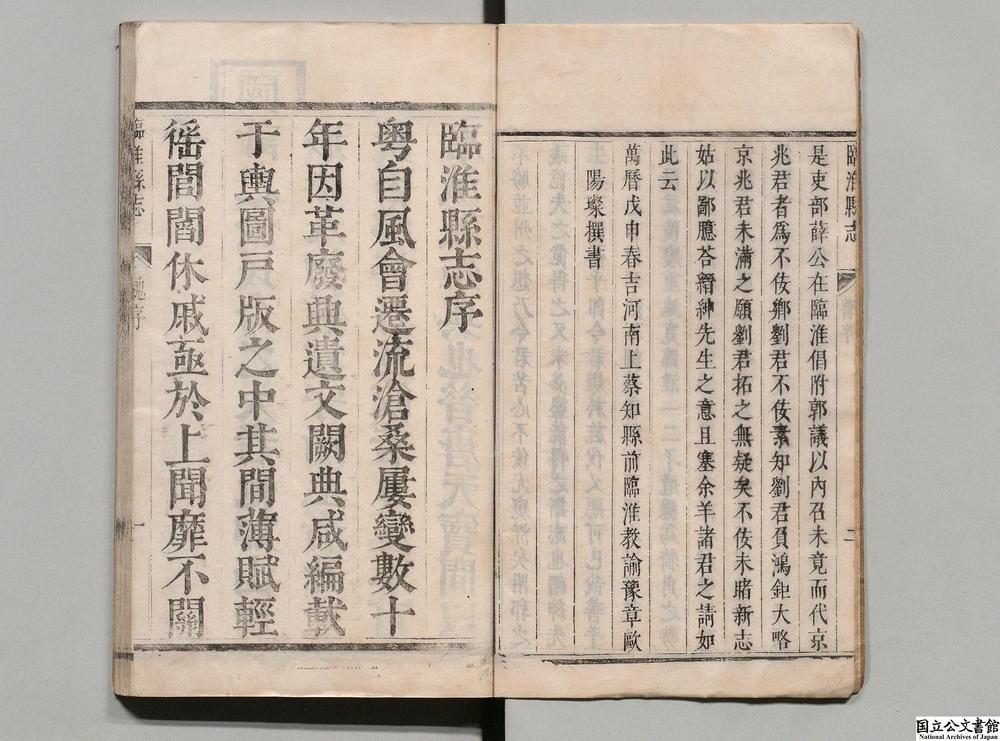 是吏部薛公在臨淮倡附郭議以內召未竟而代京
兆君者爲不佞鄉劉君不佞素知劉君負鴻鉅大略
京兆君未滿之願劉君拓之無疑矣不佞未睹新志
姑以鄙臆荅縉紳先生之意且塞余羊諸君之請如
此云
萬曆戊申春吉河南上蔡知縣前臨淮教諭豫章歐
陽璨撰書
臨淮縣志
二
臨淮縣志序
粤自風會遷流滄桑屢變數十
年因革廢興遺文闕典咸編載
于輿圖戸版之中其間薄賦輕
徭閭閻休戚亟於上聞靡不關
臨淮縣志
序
一
国立公文書館
National Archives of Japan